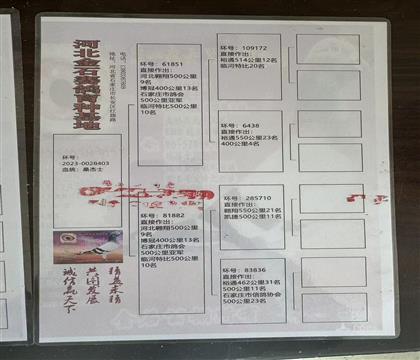 河北金石赛鸽育种基地
环号:
2023-0028403
血统:桑杰士
环号: 61851
直接作出:
河北翱翔500公里
9名
博冠400公里13名
石家庄市鸽会
500公里亚军
临河特比500公里
10名
环号: 81882
直接作出:
河北翱翔500公里
9名
博冠400公里13名
石家庄市鸽会
500公里亚军
临河特比500公里
10名
环号: 109172
直接作出:
裕通514公里12名
临河特比20名
环号: 6438
直接作出:
裕通550公里23名
400公里4名
环号: 285710
直接作出:
翱翔550公里21名
凯德500公里11名
环号: 83836
直接作出:
裕通462公里31名
石家庄市信鸽协会
500公里23名
共同发展
诚信赢天下